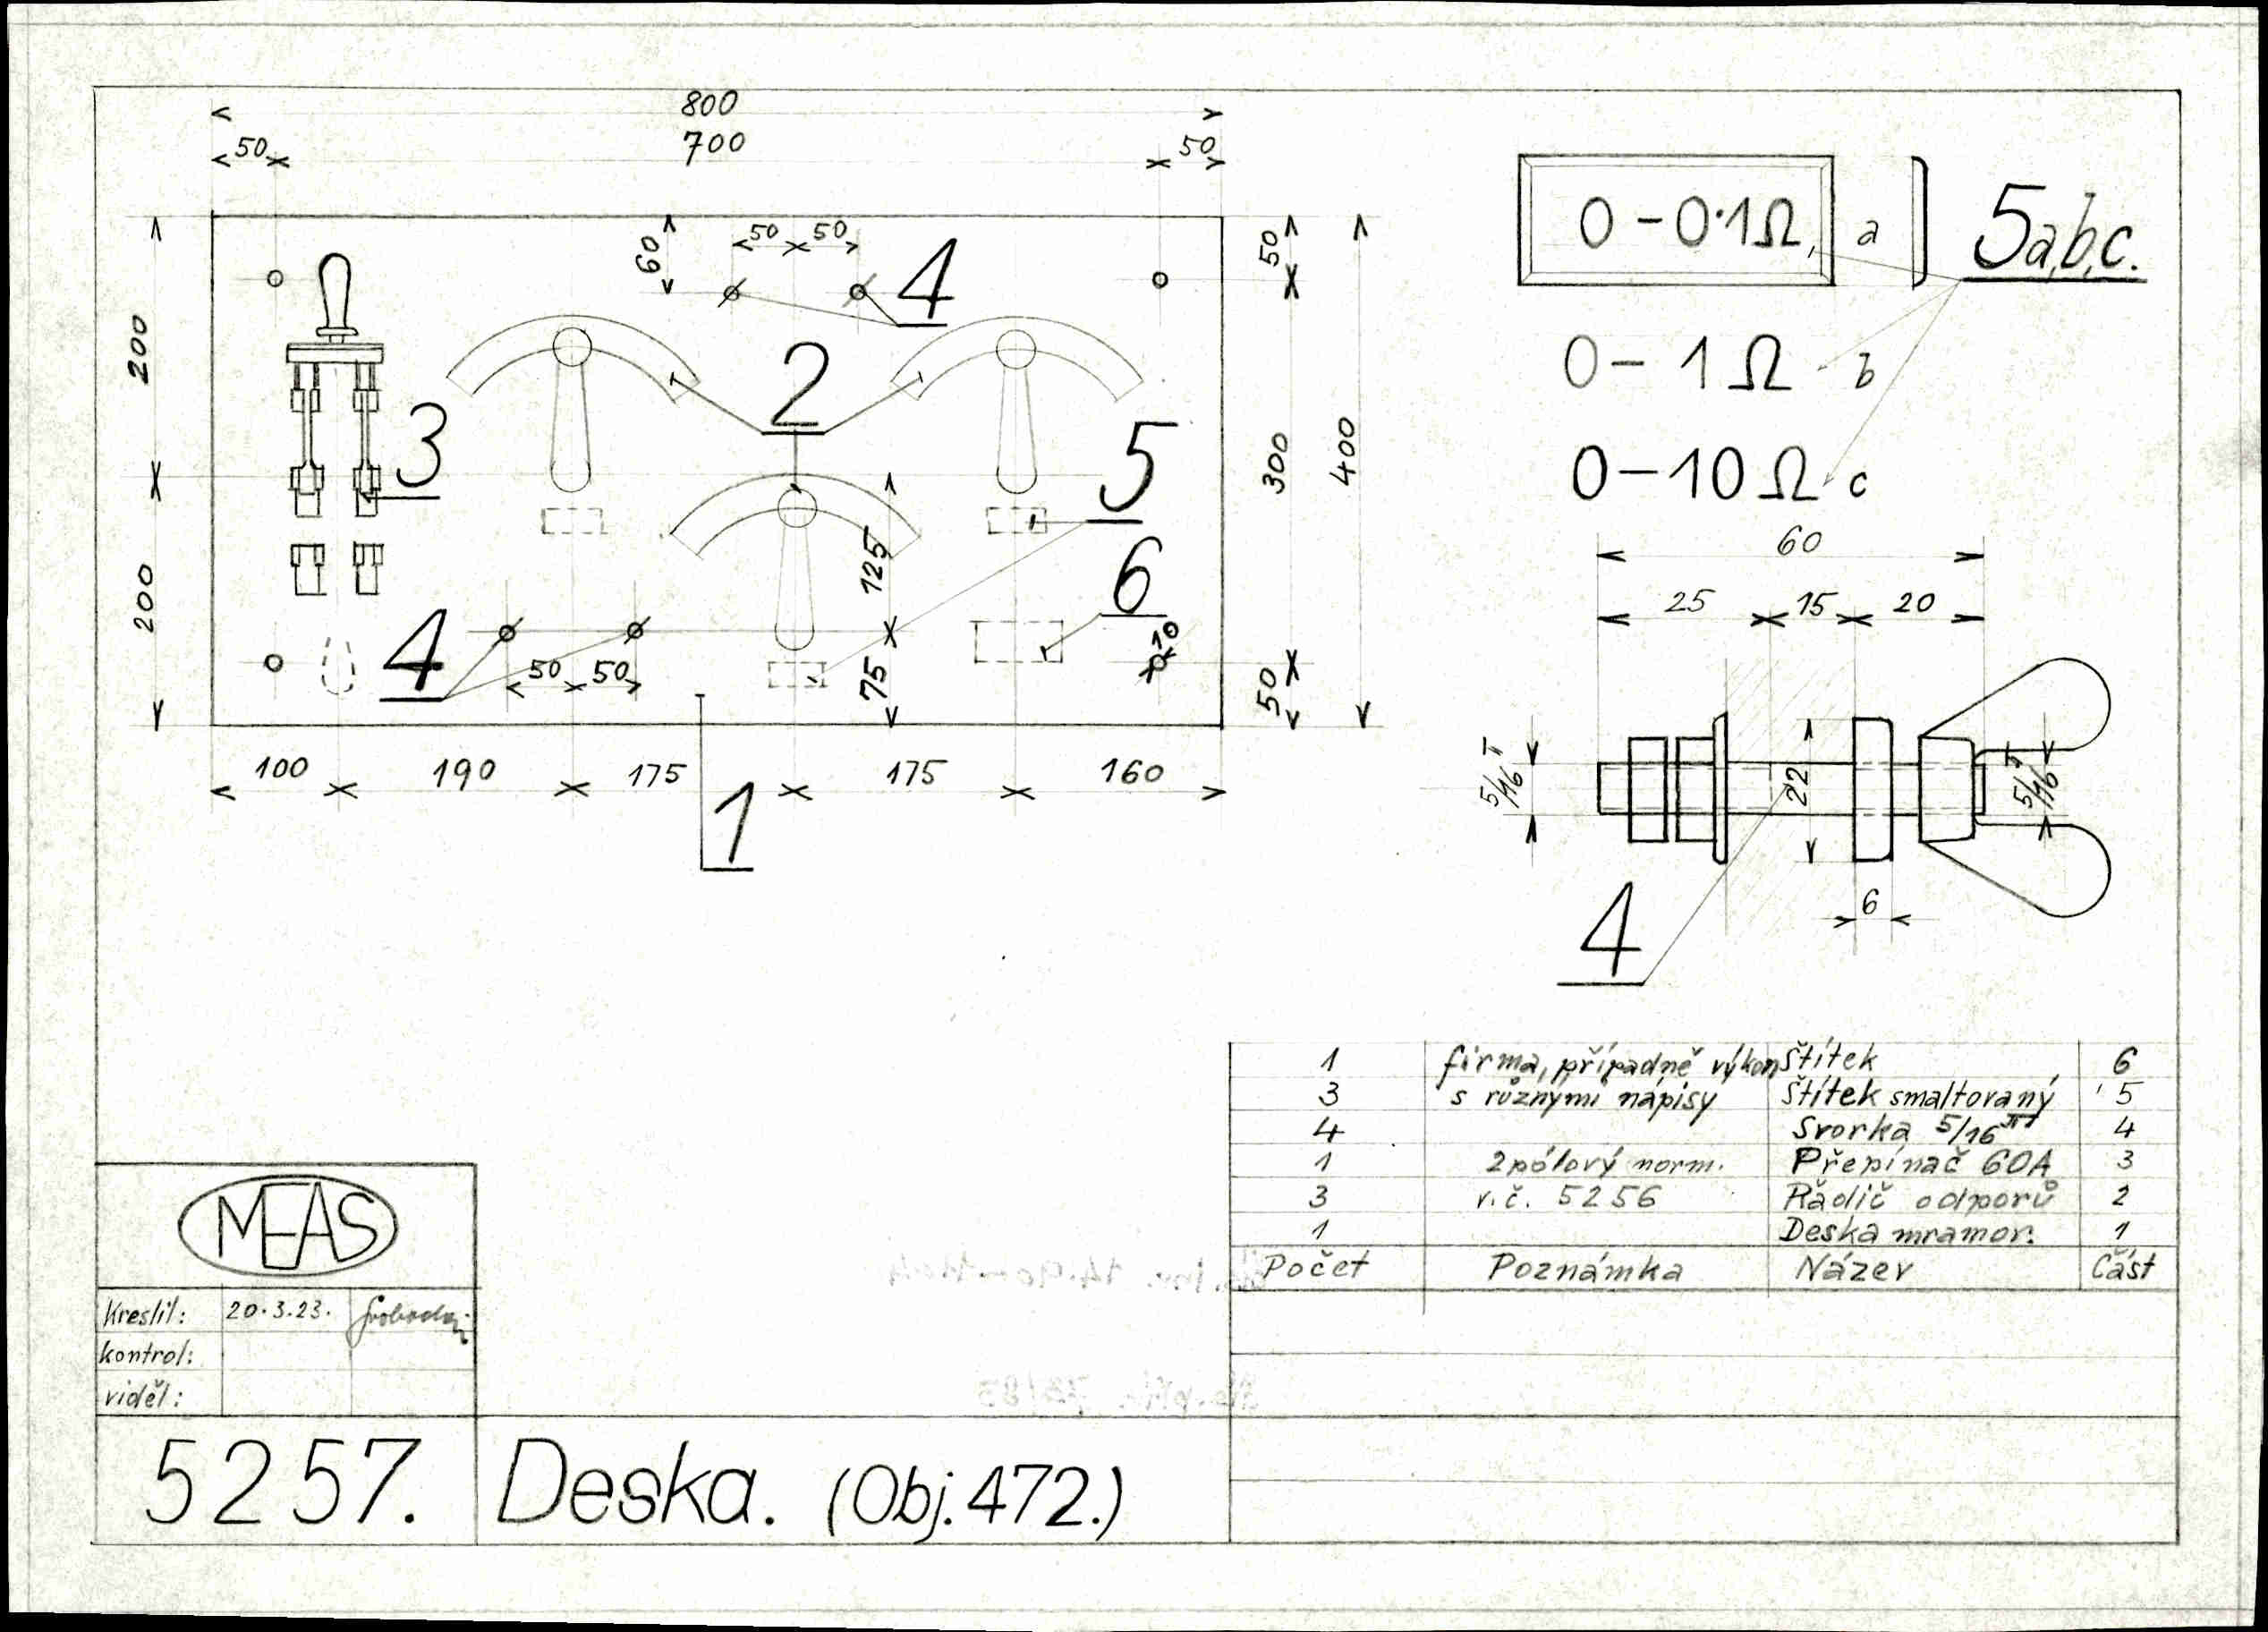 800
700
50
50
200
200
60
50 50
4
50
300
400
50
2
3
5
6
125
75
10
4
50 50
100
190
175
175
160
1
0-0·1Ω
a
5a,b,c.
0-1Ω b
0-10Ω c
60
25
15
20
5/16"
22
5/16"
6
4
1 firma, případně výkon Štítek 6
3 s různými nápisy Štítek smaltovaný 5
4 Svorka 5/16" 4
1 2pólový norm. Přepínač 60A 3
3 v.č. 5256 Řadič odporů 2
1 Deska mramor. 1
Počet Poznámka Název Část
MEAS
Kreslil: 20.3.23. Svoboda
kontrol:
viděl:
5257.
Deska. (Obj.472.)